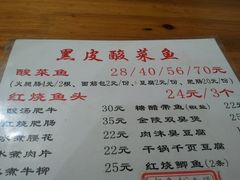 黑皮酸菜鱼
酸菜鱼 28/40/56/70元
(火腿肠4元/2根、面筋包2元/份、豆腐2元/份、肥肠20元/份)
红烧鱼头 24元/3个
酸汤肥牛 30元 糖醋带鱼
红烧肥肠 35元 金陵双臭煲
水煮腰花 22元 肉沫臭豆腐
水煮肉片 22元 干锅千页豆腐
水煮牛柳 25元 红烧鲫鱼(2条)